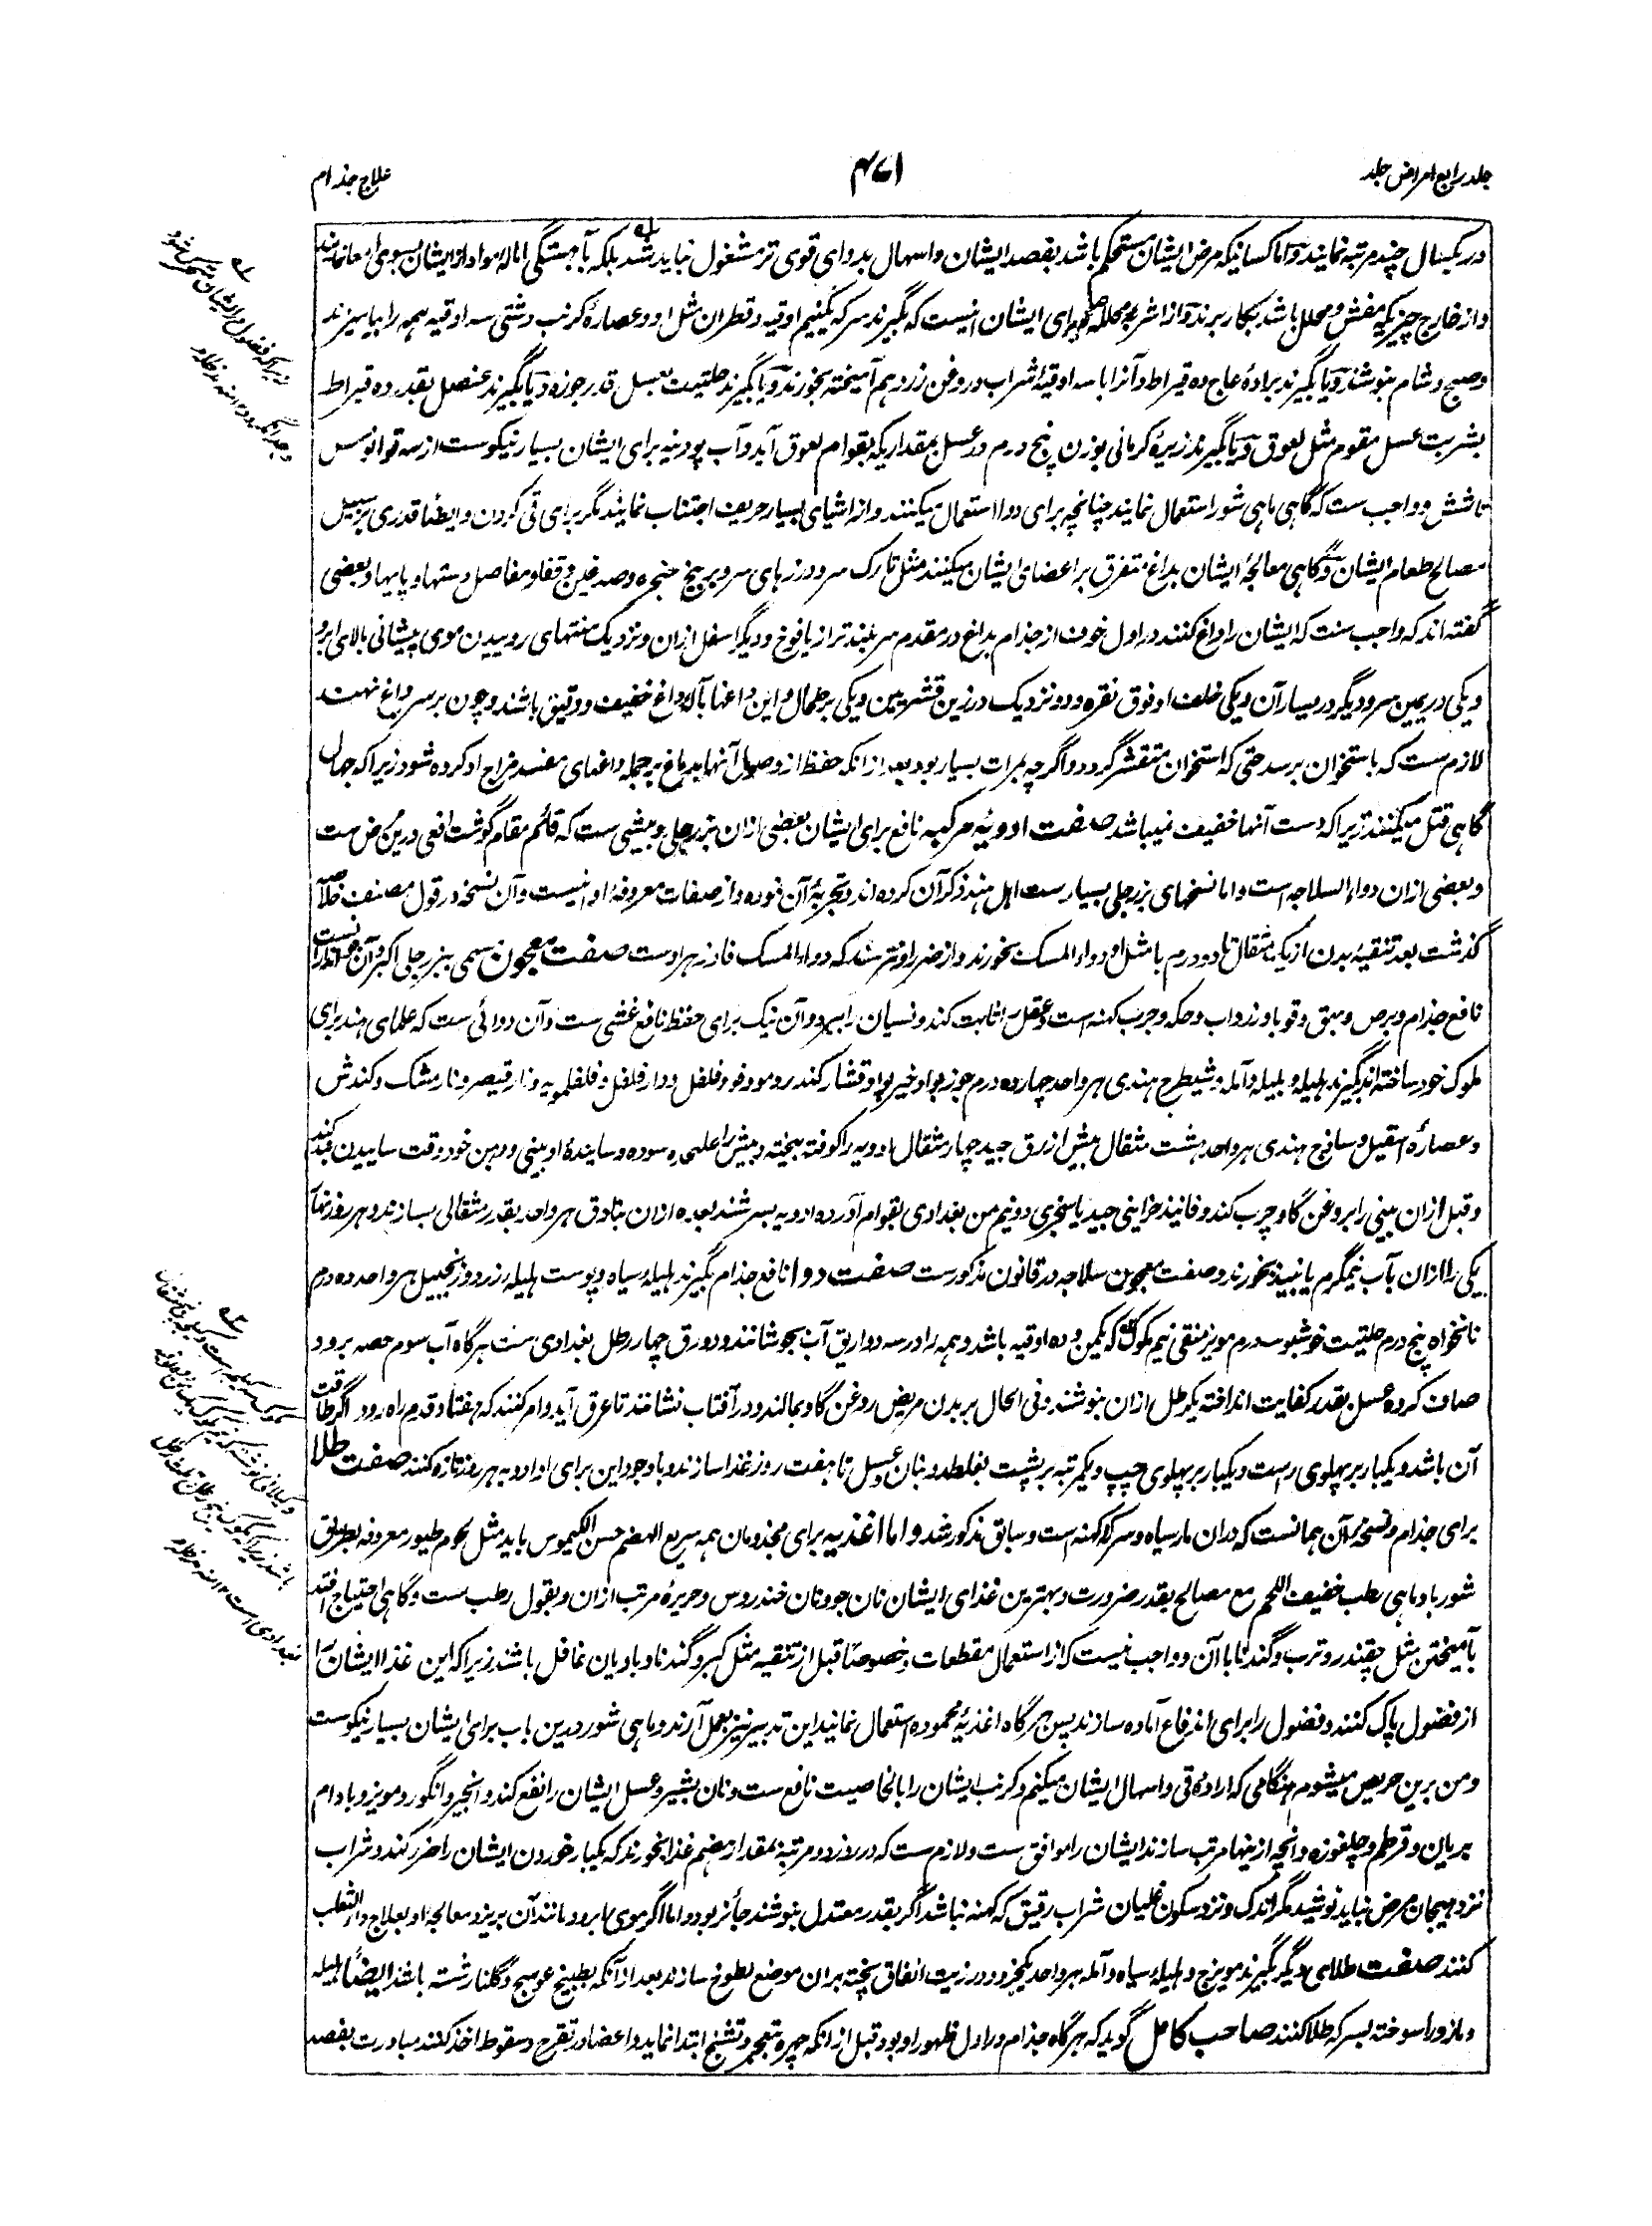 جلد رابع امراض جلد
۴۷۱
علاج جذام
در یکسال چند مرتبه نمایند و اما کسانیکه مرض ایشان مستحکم باشد بفصد ایشان و اسهال بدوای قوی تر مشغول نباید شد بلکه بآهستگی اماله مواد از ایشان بسوی امعا نمایند
و از خارج چیزیکه مفش و محلل باشد بکار برند و از اشربه محلله برای ایشان اینست که بگیرند سرکه یکنیم اوقیه و قطران مثل او و عصارهٔ کرنب دشتی سه اوقیه همه را بیامیزند
و صبح و شام بنوشند و یا بگیرند برادهٔ عاج ده قیراط و آنرا با سه اوقیه شراب و روغن زرد هم آمیخته بخورند و یا بگیرند حلتیت بعسل قدر جوزه و یا بگیرند عنصل بقدر ده قیراط
بشربت عسل مقوم مثل لعوق و یا بگیرند زیرهٔ کرمانی بوزن پنج درم در عسل بمقداریکه بقوام لعوق آید و آب پودینه برای ایشان بسیار نیکوست از سه قوانوس
تا شش و واجب ست که گاهی ماهی شور استعمال نمایند چنانچه برای دوا استعمال میکنند و از اشیای بسیار حریف اجتناب نمایند مگر برای قی کردن و ایضاً قدری بر سبیل
مصالح طعام ایشان و گاهی معالجهٔ ایشان بداغ متفرق بر اعضای ایشان میکنند مثل تارک سر و درزهای سر و بر بیخ حنجره و صدغین و قفا و مفاصل دستها و پایها و بعضی
گفته اند که واجب ست که ایشان را داغ کنند در اول خوف از جذام بداغ در مقدم سر بلندتر از یافوخ و دیگر اسفل ازان و نزدیک منتهای روییدن موی پیشانی بالای ابرو
و یکی در یمین سر و دیگر در یسار آن و یکی خلف او فوق نقره و دو نزدیک درزین قشریین و یکی بر طحال و این داغها بآلهٔ داغ خفیف و دقیق باشند و چون بر سر داغ نهند
لازم ست که باستخوان برسد حتی که استخوان متقشر گردد و اگرچه بمرات بسیار بود بعد ازانکه حفظ از وصول آنها بدماغ بر جمله داغهای مفسد مزاج او کرده شود زیرا که جهال
گاهی قتل میکنند زیرا که دست آنها خفیف نمیباشد صفت ادویهٔ مرکبه نافع برای ایشان بعضی ازان بزرجلی و بیشی ست که قائم مقام گوشت افعی درین مرض ست
و بعضی ازان دواء السلاجه است و اما نسخهای بزرجلی بسیار ست اهل هند ذکر آن کرده اند و تجربهٔ آن نموده و از صفات معروفهٔ او اینست و آن نسخه در قول مصنف خلاصه
گذشت بعد تنقیه بدن از یک مثقال تا دو درم با مثل او دواء المسک بخورند و از ضرر او نترسند که دواء المسک فادزهر اوست صفت معجون مسمی ببزرجلی اکبر آن جواندارانست
نافع جذام و برص و بهق و قوبا و زرداب و حکه و جرب کهنه است و عقل را ثابت کند و نسیان را ببرد و آن نیک برای حفظ نافع غشی ست و آن دوائی ست که علمای هند برای
ملوک خود ساخته اند بگیرند هلیله و بلیله و آمله و شیطرج هندی هر واحد چهارده درم جوزبوا و خیربوا و قشار کندر و مو و فو و فلفل و دارفلفل و فلفلمویه و نارقیصر و نارمشک و کندش
و عصارهٔ اشقیل و ساذج هندی هر واحد هشت مثقال بیش ازرق جید چهار مثقال ادویه را کوفته بیخته و بیش را علیحده سوده و سایندهٔ او بینی و دهن خود وقت ساییدن بند کند
و قبل ازان بینی را بروغن گاو چرب کند و فانیذ خزاینی جید یا سنجری دو نیم من بغدادی بقوام آورده ادویه بسرشند بعده ازان بنادق هر واحد بقدر مثقالی بسازند و هر روز نهار
یکی را ازان بآب نیمگرم یا نبیذ بخورند و صفت معجون سلاجه در قانون مذکور ست صفت دوا نافع جذام بگیرند هلیله سیاه و پوست هلیله زرد و زنجبیل هر واحد ده درم
نانخواه پنج درم حلتیت خوشبو سه درم مویز منقی نیم مکوک که یکمن و ده اوقیه باشد و همه را در سه دواریق آب بجوشانند و دورق چهار رطل بغدادی ست هرگاه آب سوم حصه برود
صاف کرده عسل بقدر کفایت انداخته یک رطل ازان بنوشند و فی الحال بر بدن مریض روغن گاو بمالند و در آفتاب نشانند تا عرق آید و امر کنند که هفتاد قدم راه رود اگر طاقت
آن باشد و یکبار بر پهلوی راست و یکبار بر پهلوی چپ و یکمرتبه بر پشت بغلطد و بنان و عسل تا هفت روز غذا سازند و باوجود این برای او ادویه هر روز تازه کنند صفت طلا
برای جذام و نسخهٔ آن همانست که دران مار سیاه و سرکهٔ کهنه است و سابق مذکور شد و اما اغذیه برای مجذومان همه سریع الهضم حسن الکیموس باید مثل لحوم طیور معروفه بطریق
شوربا و ماهی رطب خفیف اللحم مع مصالح بقدر ضرورت و بهترین غذای ایشان نان جو و نان خندروس و حریرهٔ مرتب ازان و بقول رطب ست و گاهی احتیاج افتد
بآمیختن مثل چقندر و ترب و گندنا باآن و واجب نیست که از استعمال مقطعات و خصوصاً قبل از تنقیه مثل کبر و گندنا و بادیان غافل باشند زیرا که این غذا ایشان را
از فضول پاک کنند و فضول را برای اندفاع آماده سازند پس هرگاه اغذیهٔ محموده استعمال نمایند این تدبیر نیز بعمل آرند و ماهی شور درین باب برای ایشان بسیار نیکوست
و من برین حریص میشوم هنگامی که ارادهٔ قی و اسهال ایشان میکنم و کرنب ایشان را بالخاصیت نافع ست و نان بشیر و عسل ایشان را نفع کند و انجیر و انگور و مویز و بادام
بریان و قرطم و چلغوزه و آنچه ازینها مرتب سازند ایشان را موافق ست و لازم ست که در روز دو مرتبه بمقدار هضم غذا بخورند که یکبار خوردن ایشان را ضرر کند و شراب
نزد هیجان مرض نباید نوشید مگر اندک و نزد سکون غلیان شراب رقیق که کهنه نباشد اگر بقدر معتدل بنوشند جائز بود و اما اگر موی ابرو و مانند آن بریزد معالجهٔ او بعلاج داء الثعلب
کنند صفت طلای دیگر بگیرند مویزج و هلیله سیاه و آمله هر واحد یکجزو و در زیت انفاق پخته بران موضع لطوخ سازند بعد ازآنکه بطبیخ عوسج و گلنار شسته باشند ایضاً هلیله
و مازو را سوخته بسرکه طلا کنند صاحب کامل گوید که هرگاه جذام در اول ظهور او بود قبل ازانکه چهره تبهج و تشنج ابتدا نماید و اعضا در تقرح و سقوط اخذ کنند مبادرت بفصد